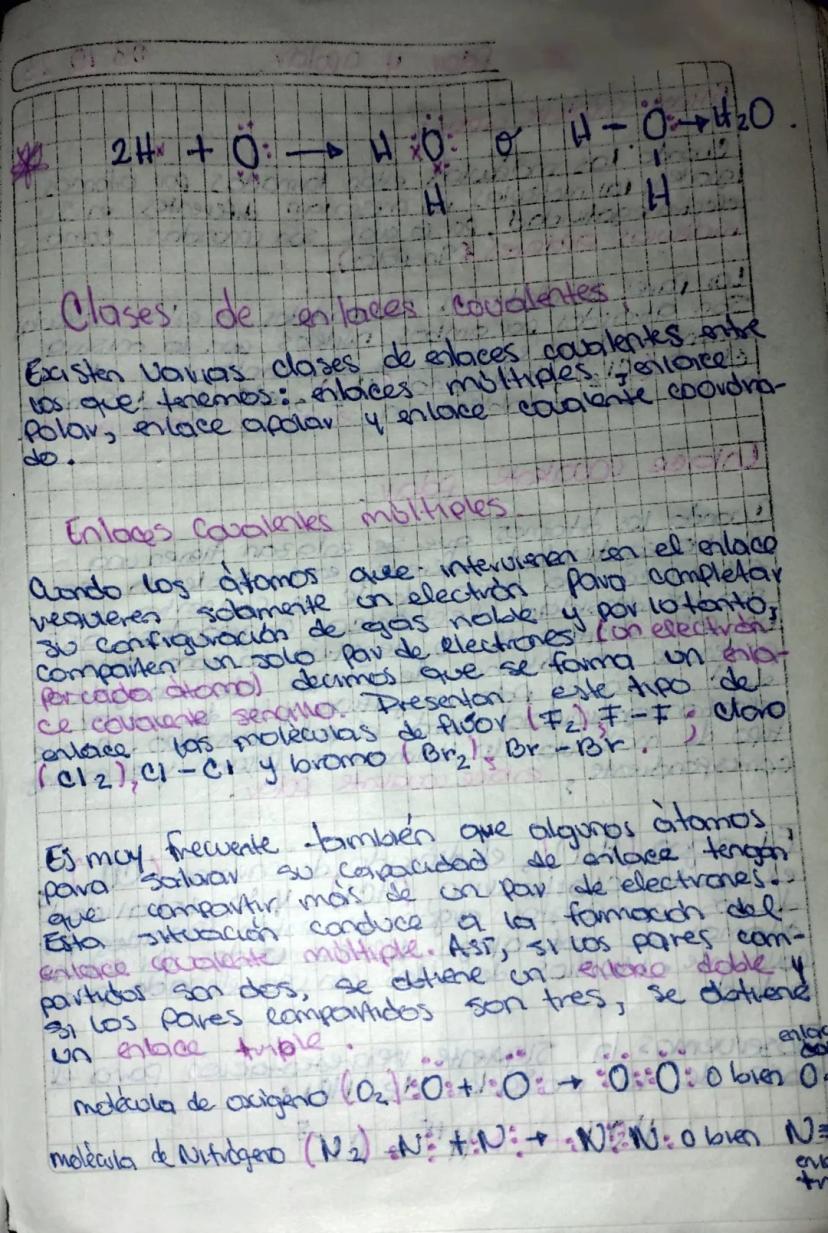 2H× + Ö: → H ×Ö: o H – Ö: → H₂O.
H H
Clases de enlaces covalentes.
Existen varias clases de enlaces covalentes entre
los que tenemos: enlaces múltiples, enlace
Polar, enlace apolar y enlace covalente coordina-
do.
Enlaces Covalentes múltiples.
Cuando los átomos que intervienen en el enlace
requieren solamente un electrón para completar
su configuración de gas noble y por lo tanto,
comparten un solo par de electrones (un electrón
por cada átomo) decimos que se forma un enla-
ce covalente sencillo. Presentan este tipo de
enlace las moléculas de flúor (F₂), F–F; cloro
(Cl₂), Cl–Cl y bromo (Br₂), Br–Br.
Es muy frecuente también que algunos átomos,
para saturar su capacidad de enlace tengan
que compartir más de un par de electrones.
Esta situación conduce a la formación del
enlace covalente múltiple. Así, si los pares com-
partidos son dos, se obtiene un enlace doble y
si los pares compartidos son tres, se obtiene
un enlace triple.
enlac
do
molécula de oxígeno (O₂) :Ö: + :Ö: → :Ö::Ö: o bien O
molécula de Nitrógeno (N₂) :N: + :N: → :N:::N: o bien N≡
enl
tr